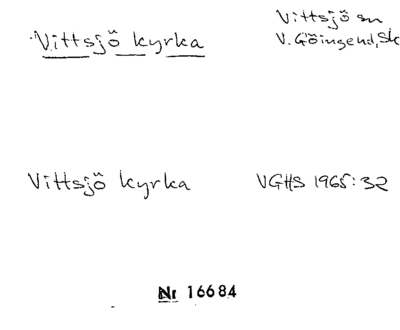 Vittsjö kyrka
Vittsjö sn
V. Göingehd, Sk
Vittsjö kyrka
VGHS 1965:32
Nr 16684